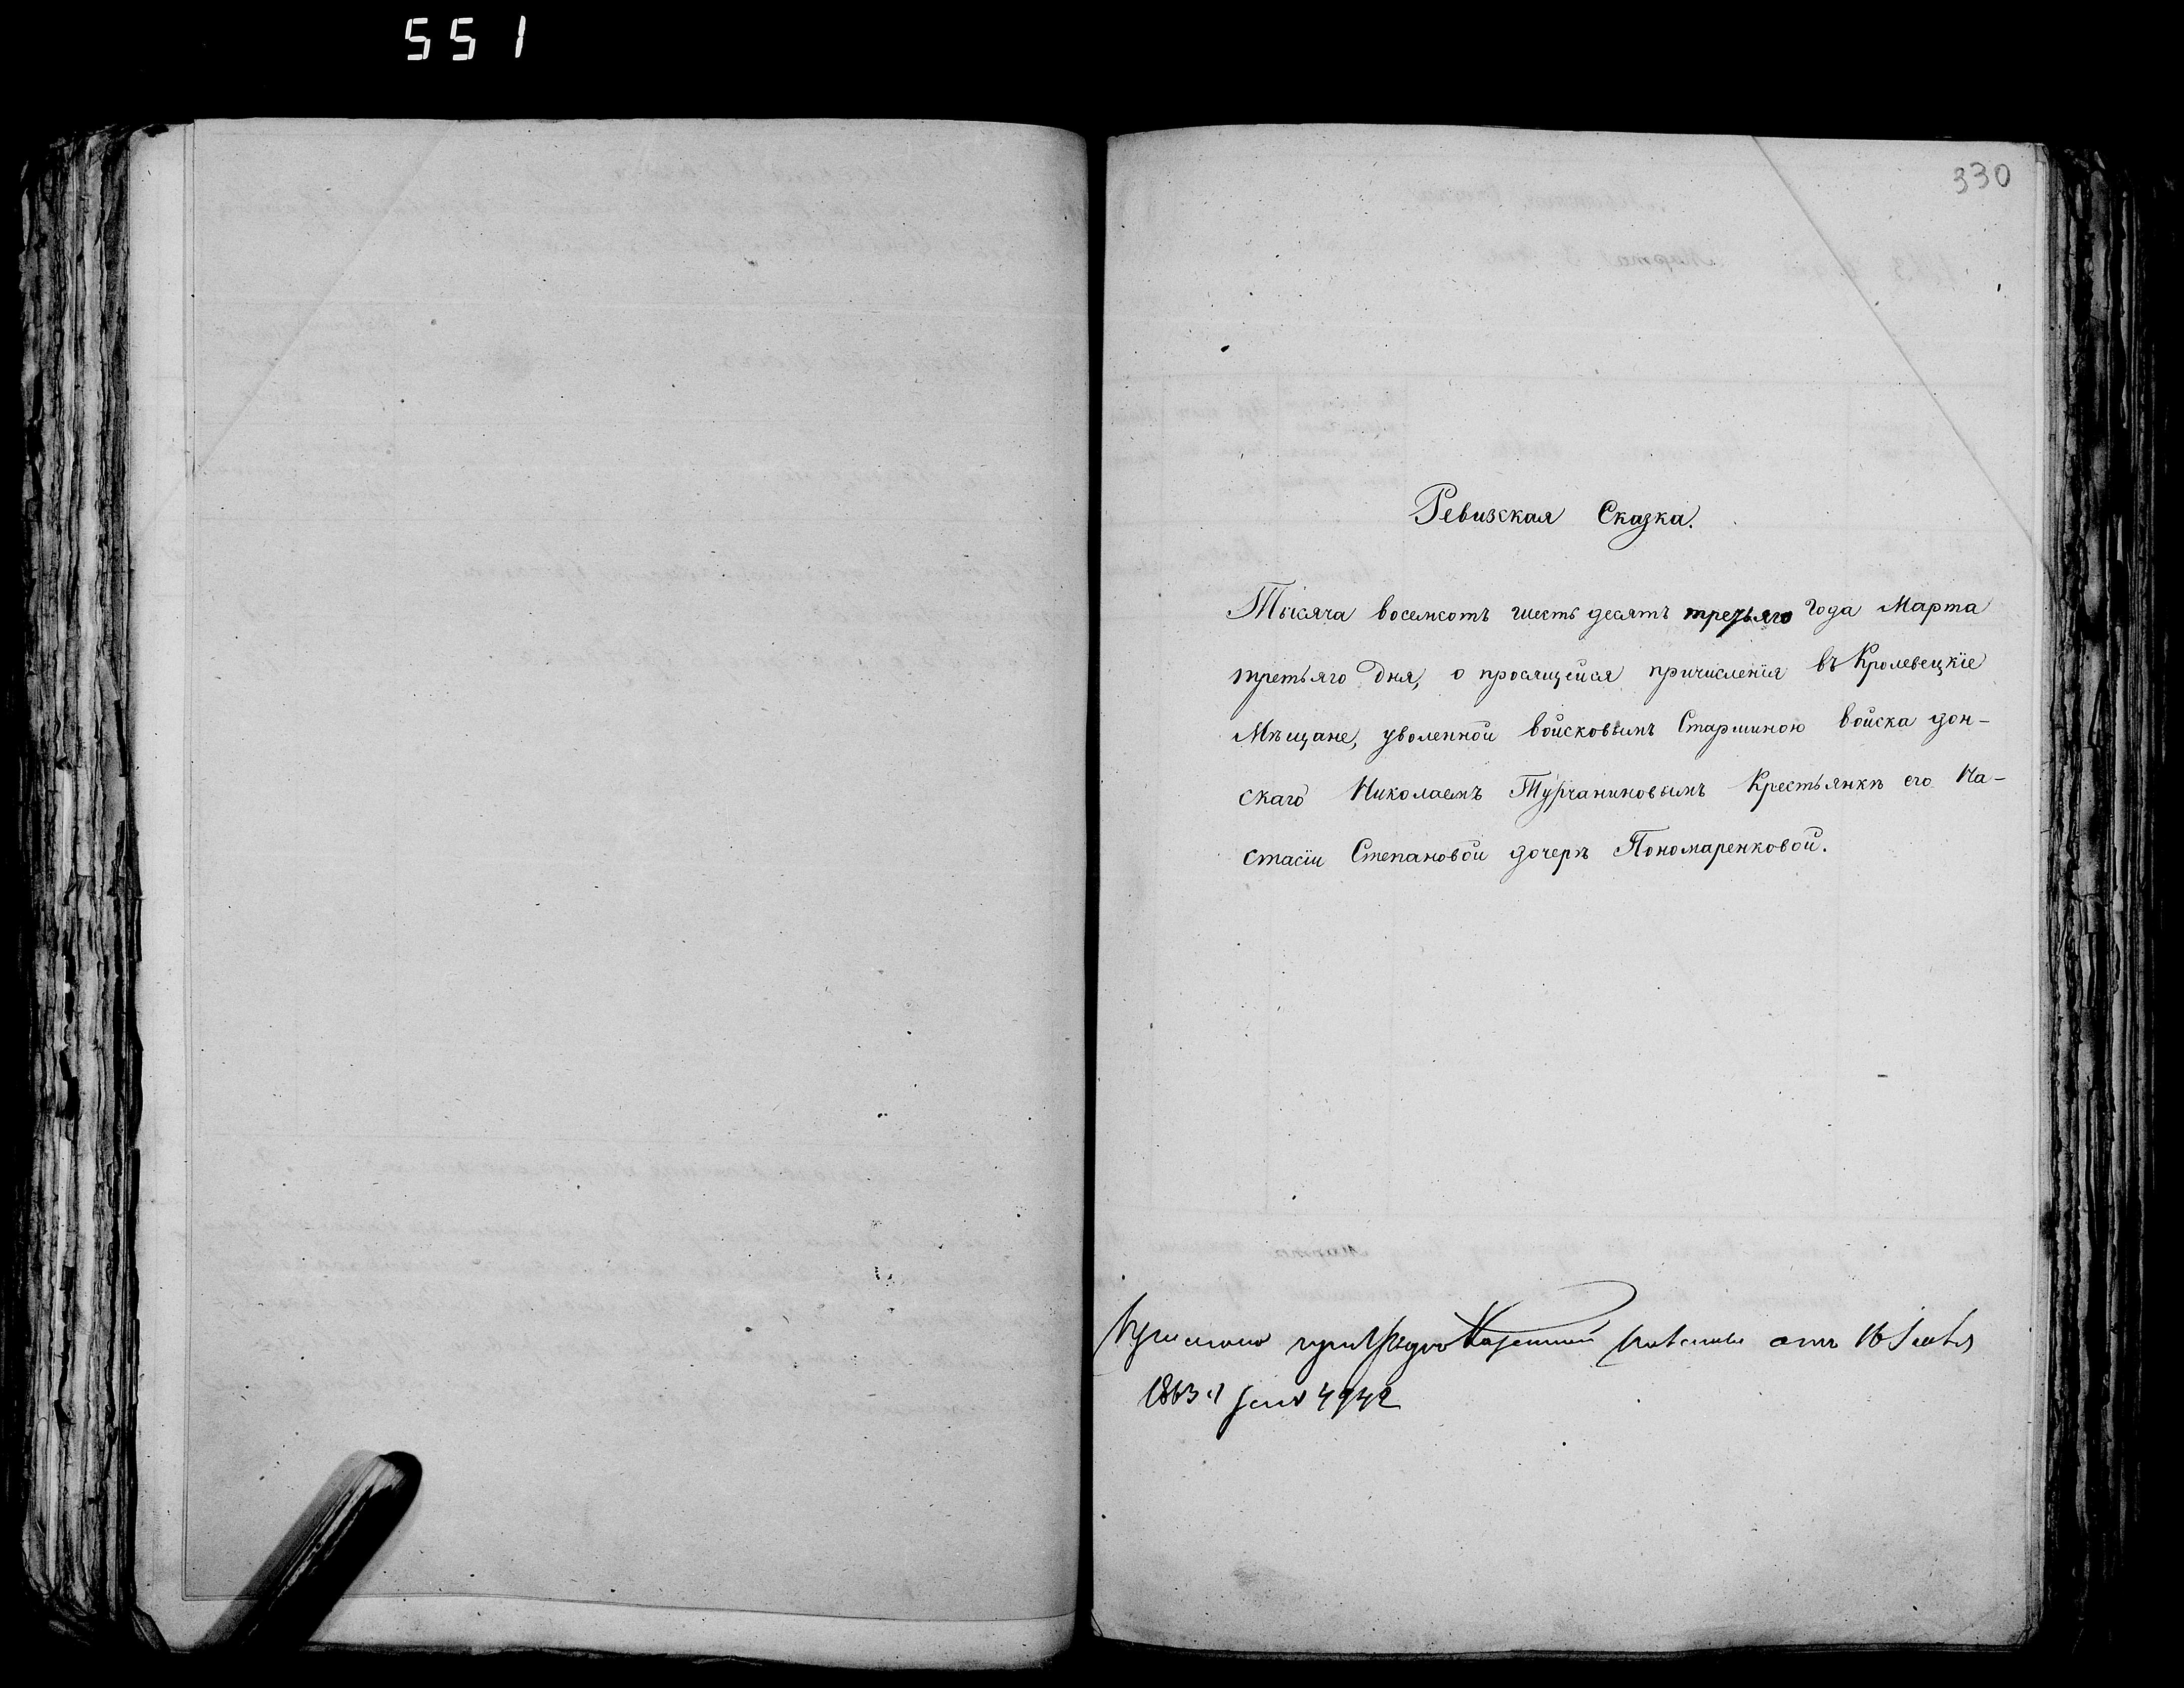 551
330
Ревизская Сказка.
Тысяча восемсотъ шестьдесятъ третьяго года Марта
третьяго дня, о просящейся причисленія въ Кролевецкіе
Мѣщане, уволенной войсковымъ Старшиною войска дон-
скаго Николаемъ Турчаниновымъ Крестьянкѣ его На-
стасіи Степановой дочерѣ Пономаренковой.
при Казенной отъ 16
1863 4942